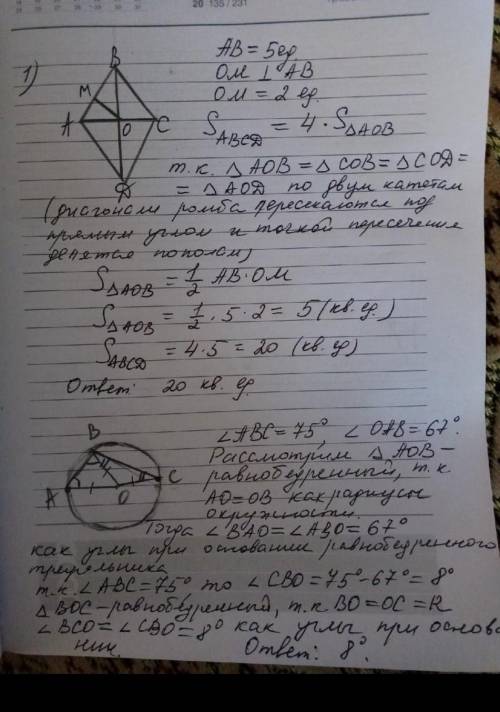 20 135 / 231
1)
AB = 5 ед.
OM ⊥ AB
OM = 2 ед.
B
M
A
O
C
D
S_ABCD = 4 · S_ΔAOB
т.к. ΔAOB = ΔCOB = ΔCOD =
= ΔAOD по двум катетам
(диагонали ромба пересекаются под
прямым углом и точкой пересечения
делятся пополам)
S_ΔAOB = 1/2 AB · OM
S_ΔAOB = 1/2 · 5 · 2 = 5 (кв. ед.)
S_ABCD = 4 · 5 = 20 (кв. ед)
Ответ: 20 кв. ед.
B
A
O
C
∠ABC = 75°, ∠OAB = 67°.
Рассмотрим ΔAOB –
равнобедренный, т.к.
AO = OB как радиусы
окружности.
Тогда ∠BAO = ∠ABO = 67°
как углы при основании равнобедренного
треугольника
т.к. ∠ABC = 75°, то ∠CBO = 75° - 67° = 8°
ΔBOC – равнобедренный, т.к BO = OC = R
∠BCO = ∠CBO = 8° как углы при основа
нии.
Ответ: 8°.